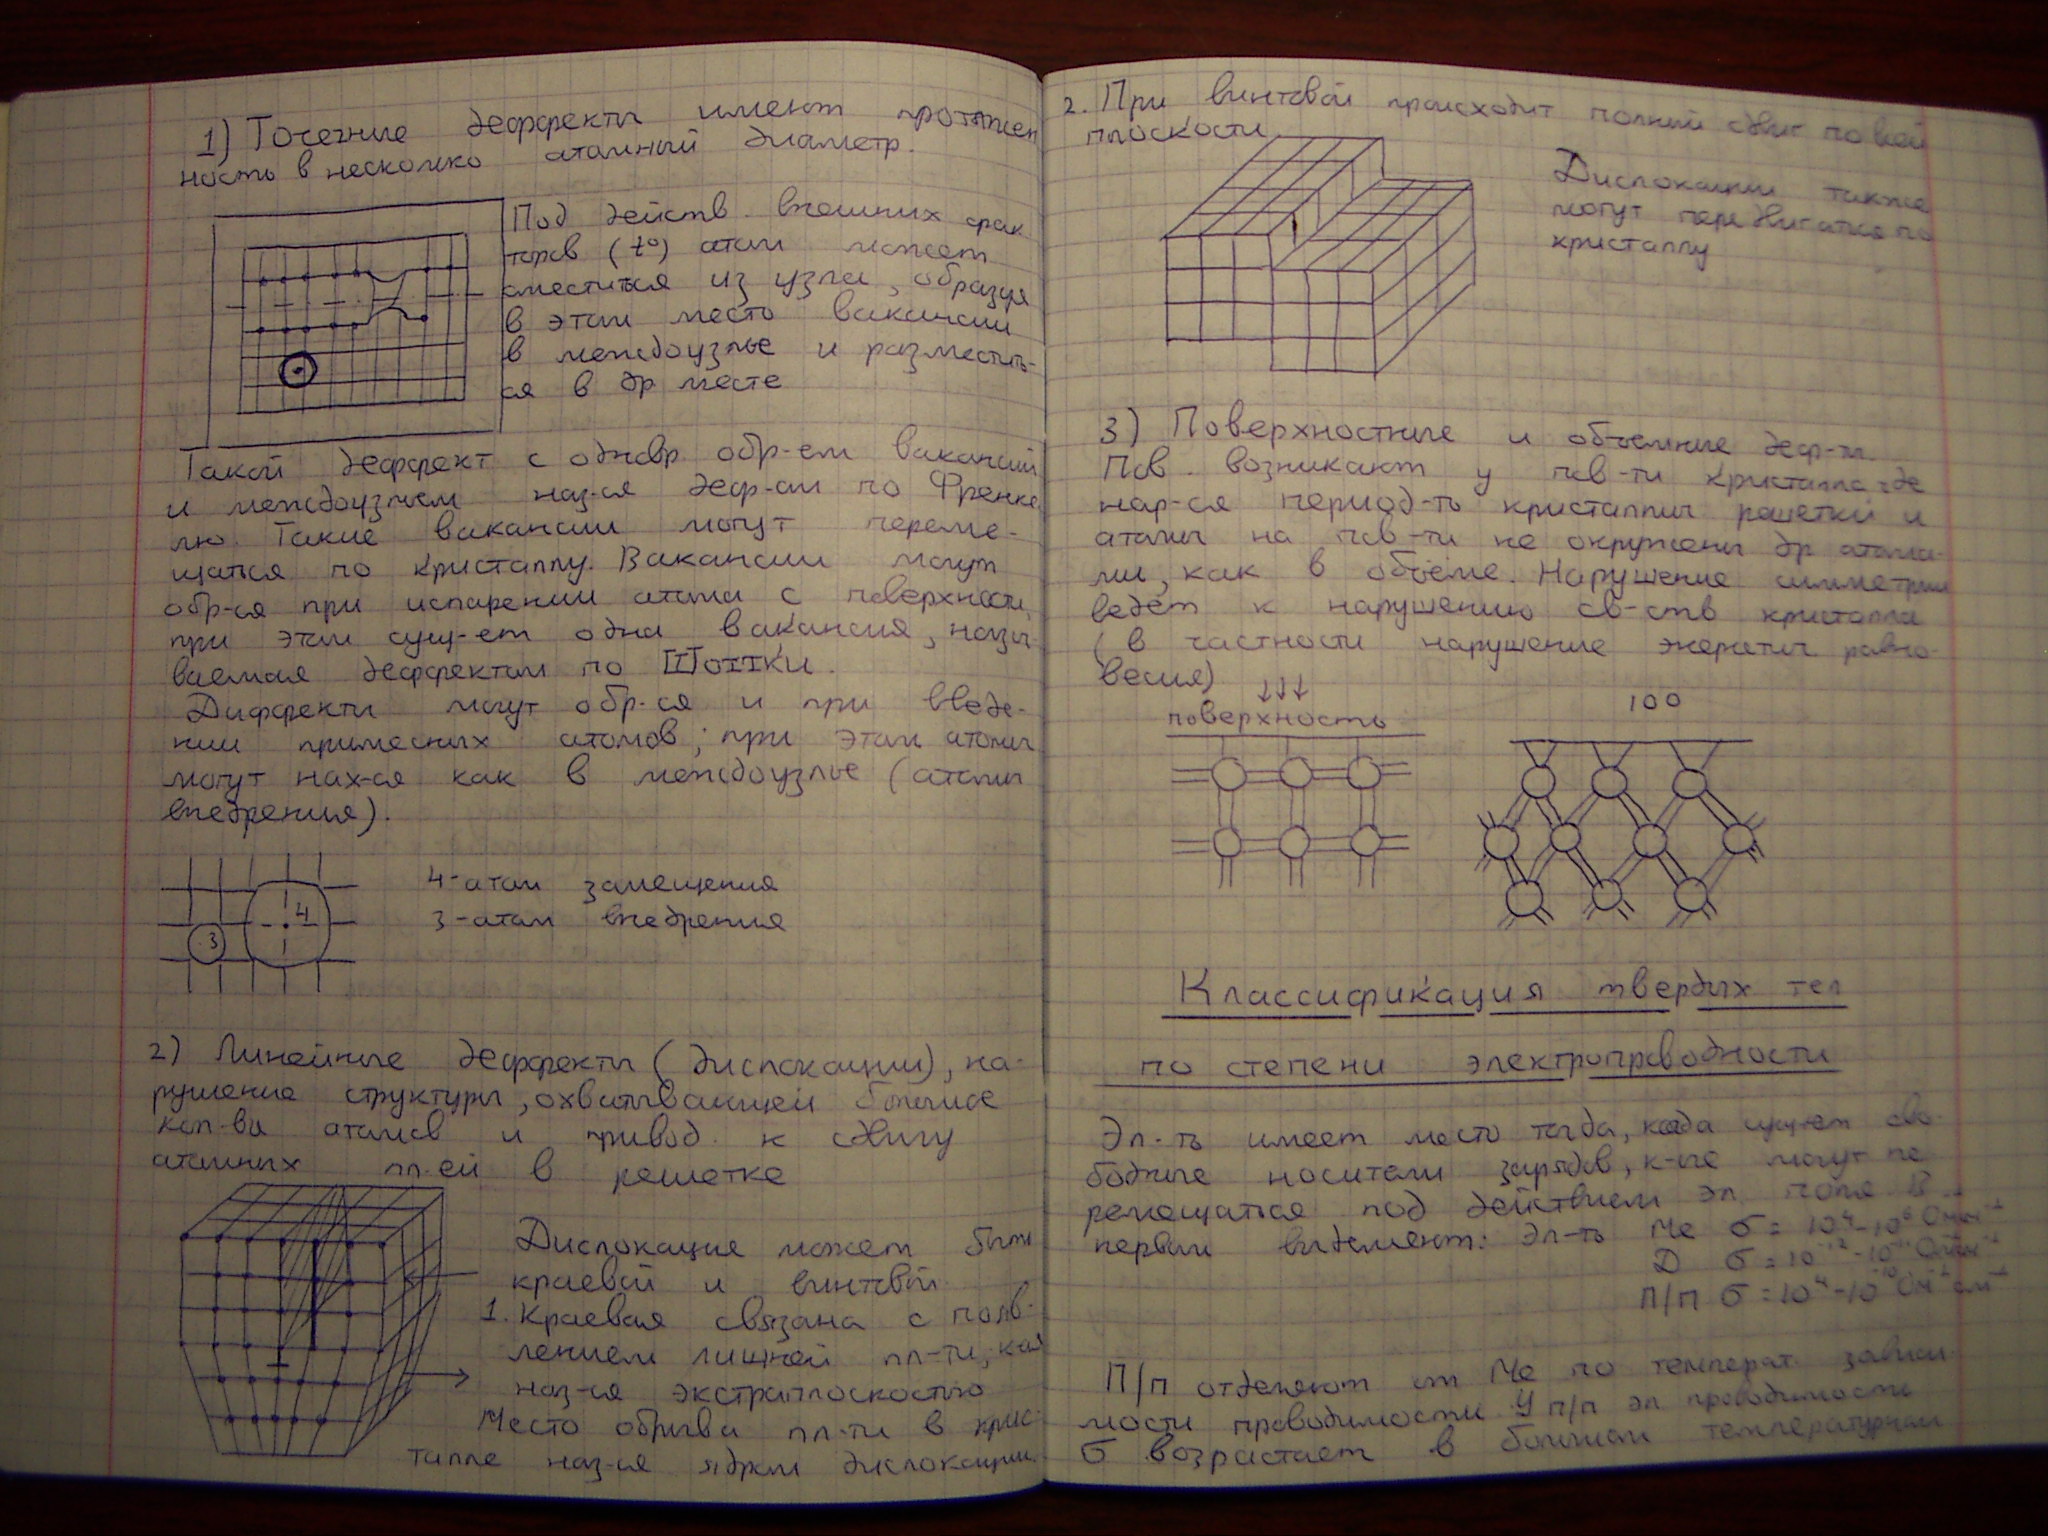 1) Точечные деффекты имеют протяжен
ность в несколько атомный диаметр.
Под действ. внешних фак
торов (t°) атом может
сместиться из узла, образуя
в этом место вакансии
в междоузлье и разместить-
ся в др месте
Такой деффект с одновр обр-ем вакансий
и междоузлием наз-ся деф-ом по Френке
лю. Такие вакансии могут переме-
щаться по кристаллу. Вакансии могут
обр-ся при испарении атома с поверхности,
при этом сущ-ет одна вакансия, назы-
ваемая деффектом по Шоттки.
Диффекты могут обр-ся и при введе-
нии примесных атомов; при этом атомы
могут нах-ся как в междоузлье (атомы
внедрения).
4-атом замещения
3-атом внедрения
4
3
2) Линейные деффекты (дислокации), на-
рушение структуры, охватывающей большие
кол-ва атомов и привод. к сдвигу
атомных пл-ей в решетке
Дислокация может быть
краевой и винтовой
1. Краевая связана с появ-
лением лишней пл-ти, кот
наз-ся экстраплоскостью
Место обрыва пл-ти в крис-
талле наз-ся ядром дислокации.
2. При винтовой происходит полный сдвиг по всей
плоскости
Дислокации также
могут передвигаться по
кристаллу
3) Поверхностные и объемные деф-ты.
Пов. возникают у пов-ти кристалла где
нар-ся период-ть кристаллич решетки и
атомы на пов-ти не окружены др атома-
ми, как в объеме. Нарушение симметрии
ведёт к нарушению св-ств кристалла
(в частности нарушение энергетич равно-
весия)
поверхность
100
Классификация твердых тел
по степени электропроводности
Эл-ть имеет место тогда, когда сущ-ет сво-
бодные носители зарядов, к-ые могут пе
ремещаться под действием эл поля В
первом выделяют: Эл-ть Ме σ = 10⁴-10⁶ Ом⁻¹
Д σ = 10⁻¹²
П/П σ = 10⁴-10⁻¹⁰ Ом⁻¹см⁻¹
П/п отделяют от Ме по температ. зависи-
мости проводимости У п/п эл проводимость
σ возрастает в большом температурном